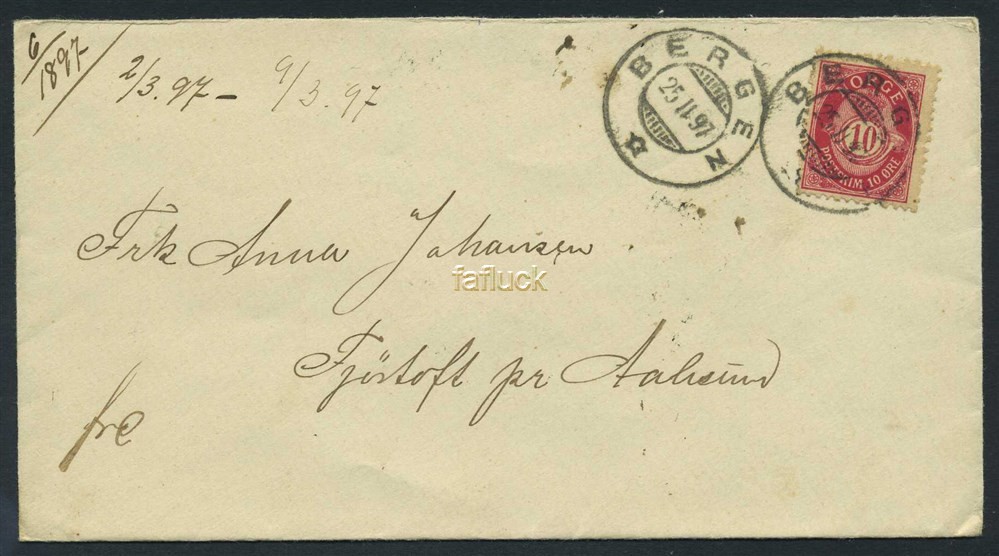 6/1897
2/3.97-
9/3.97
BERGEN
25 II 97
BERGEN
NORGE
10
POSTFRIM 10 ØRE
Frk Anna Johansen
fafluck
Fjörtoft pr Aalesund
frc